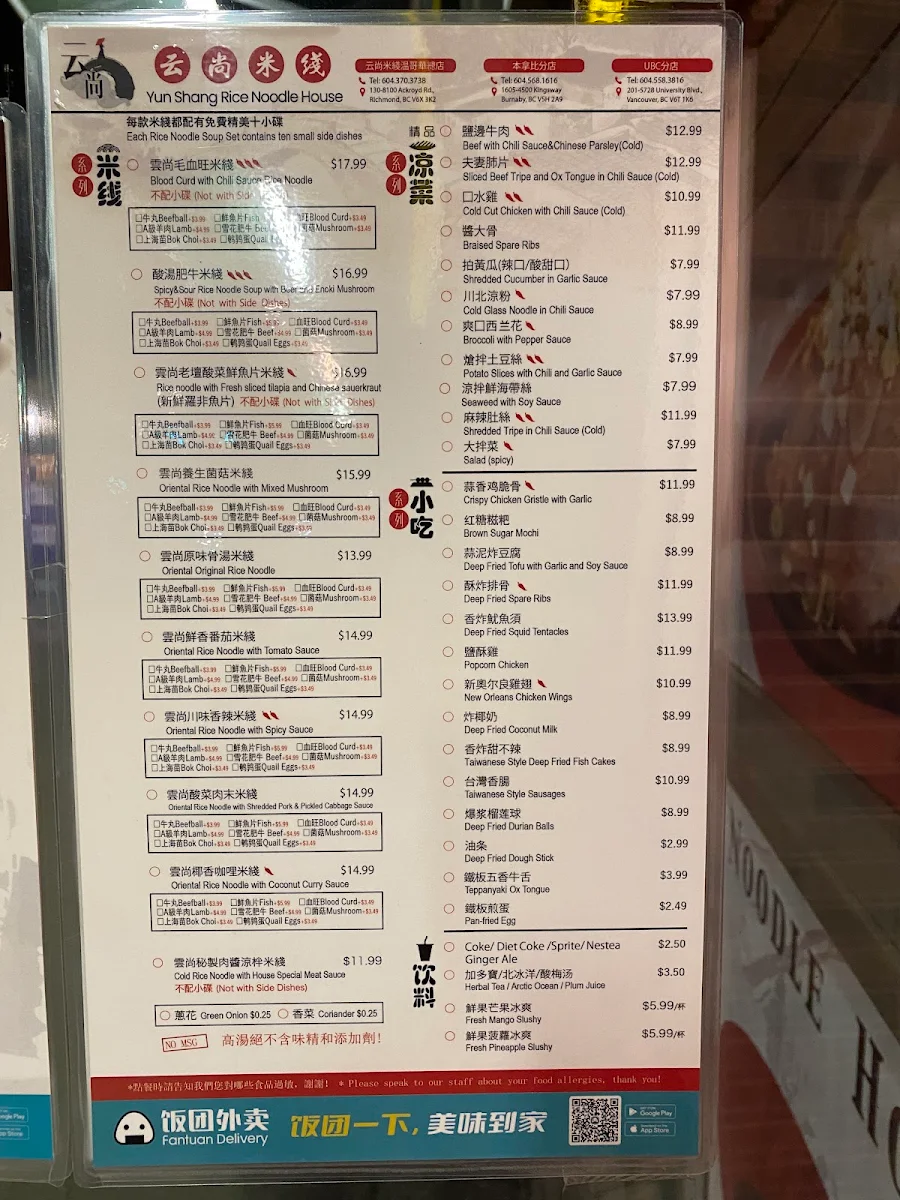 云尚
云尚米线
Yun Shang Rice Noodle House
云尚米綫温哥華總店
Tel: 604.370.3738
130-8100 Ackroyd Rd.,
Richmond, BC V6X 3K2
本拿比分店
Tel: 604.568.1616
1605-4500 Kingsway
Burnaby, BC V5H 2A9
UBC分店
Tel: 604.558.3816
201-5728 University Blvd.,
Vancouver, BC V6T 1K6
每款米綫都配有免費精美十小碟
Each Rice Noodle Soup Set contains ten small side dishes
米线
系列
雲尚毛血旺米綫 $17.99
Blood Curd with Chili Sauce Rice Noodle
不配小碟 (Not with Side
□牛丸Beefball+$3.99 □鮮魚片Fish □血旺Blood Curd+$3.49
□A級羊肉Lamb+$4.99 □雪花肥牛 Beef □菌菇Mushroom+$3.49
□上海苗Bok Choi+$3.49 □鹌鹑蛋Quail
酸湯肥牛米綫 $16.99
Spicy&Sour Rice Noodle Soup with Beef and Encki Mushroom
不配小碟 (Not with Side Dishes)
□牛丸Beefball+$3.99 □鮮魚片Fish+$5.99 □血旺Blood Curd+$3.49
□A級羊肉Lamb+$4.99 □雪花肥牛 Beef+$4.99 □菌菇Mushroom+$3.49
□上海苗Bok Choi+$3.49 □鹌鹑蛋Quail Eggs+$3.49
雲尚老壇酸菜鮮魚片米綫 $16.99
Rice noodle with Fresh sliced tilapia and Chinese sauerkraut
(新鮮羅非魚片) 不配小碟 (Not with Side Dishes)
□牛丸Beefball+$3.99 □鮮魚片Fish+$5.99 □血旺Blood Curd+$3.49
□A級羊肉Lamb+$4.99 □雪花肥牛 Beef+$4.99 □菌菇Mushroom+$3.49
□上海苗Bok Choi+$3.49 □鹌鹑蛋Quail Eggs+$3.49
雲尚養生菌菇米綫 $15.99
Oriental Rice Noodle with Mixed Mushroom
□牛丸Beefball+$3.99 □鮮魚片Fish+$5.99 □血旺Blood Curd+$3.49
□A級羊肉Lamb+$4.99 □雪花肥牛 Beef+$4.99 □菌菇Mushroom+$3.49
□上海苗Bok Choi+$3.49 □鹌鹑蛋Quail Eggs+$3.49
雲尚原味骨湯米綫 $13.99
Oriental Original Rice Noodle
□牛丸Beefball+$3.99 □鮮魚片Fish+$5.99 □血旺Blood Curd+$3.49
□A級羊肉Lamb+$4.99 □雪花肥牛 Beef+$4.99 □菌菇Mushroom+$3.49
□上海苗Bok Choi+$3.49 □鹌鹑蛋Quail Eggs+$3.49
雲尚鮮香番茄米綫 $14.99
Oriental Rice Noodle with Tomato Sauce
□牛丸Beefball+$3.99 □鮮魚片Fish+$5.99 □血旺Blood Curd+$3.49
□A級羊肉Lamb+$4.99 □雪花肥牛 Beef+$4.99 □菌菇Mushroom+$3.49
□上海苗Bok Choi+$3.49 □鹌鹑蛋Quail Eggs+$3.49
雲尚川味香辣米綫 $14.99
Oriental Rice Noodle with Spicy Sauce
□牛丸Beefball+$3.99 □鮮魚片Fish+$5.99 □血旺Blood Curd+$3.49
□A級羊肉Lamb+$4.99 □雪花肥牛 Beef+$4.99 □菌菇Mushroom+$3.49
□上海苗Bok Choi+$3.49 □鹌鹑蛋Quail Eggs+$3.49
雲尚酸菜肉末米綫 $14.99
Oriental Rice Noodle with Shredded Pork & Pickled Cabbage Sauce
□牛丸Beefball+$3.99 □鮮魚片Fish+$5.99 □血旺Blood Curd+$3.49
□A級羊肉Lamb+$4.99 □雪花肥牛 Beef+$4.99 □菌菇Mushroom+$3.49
□上海苗Bok Choi+$3.49 □鹌鹑蛋Quail Eggs+$3.49
雲尚椰香咖喱米綫 $14.99
Oriental Rice Noodle with Coconut Curry Sauce
□牛丸Beefball+$3.99 □鮮魚片Fish+$5.99 □血旺Blood Curd+$3.49
□A級羊肉Lamb+$4.99 □雪花肥牛 Beef+$4.99 □菌菇Mushroom+$3.49
□上海苗Bok Choi+$3.49 □鹌鹑蛋Quail Eggs+$3.49
雲尚秘製肉醬涼柈米綫 $11.99
Cold Rice Noodle with House Special Meat Sauce
不配小碟 (Not with Side Dishes)
蔥花 Green Onion $0.25 香菜 Coriander $0.25
NO MSG 高湯絕不含味精和添加劑!
精品
凉菜
系列
鹽邊牛肉 $12.99
Beef with Chili Sauce&Chinese Parsley(Cold)
夫妻肺片 $12.99
Sliced Beef Tripe and Ox Tongue in Chili Sauce (Cold)
口水雞 $10.99
Cold Cut Chicken with Chili Sauce (Cold)
醬大骨 $11.99
Braised Spare Ribs
拍黃瓜(辣口/酸甜口) $7.99
Shredded Cucumber in Garlic Sauce
川北涼粉 $7.99
Cold Glass Noodle in Chili Sauce
爽口西兰花 $8.99
Broccoli with Pepper Sauce
熗拌土豆絲 $7.99
Potato Slices with Chili and Garlic Sauce
涼拌鮮海帶絲 $7.99
Seaweed with Soy Sauce
麻辣肚絲 $11.99
Shredded Tripe in Chili Sauce (Cold)
大拌菜 $7.99
Salad (spicy)
小吃
系列
蒜香鸡脆骨 $11.99
Crispy Chicken Gristle with Garlic
红糖糍粑 $8.99
Brown Sugar Mochi
蒜泥炸豆腐 $8.99
Deep Fried Tofu with Garlic and Soy Sauce
酥炸排骨 $11.99
Deep Fried Spare Ribs
香炸魷魚須 $13.99
Deep Fried Squid Tentacles
鹽酥雞 $11.99
Popcorn Chicken
新奧尔良雞翅 $10.99
New Orleans Chicken Wings
炸椰奶 $8.99
Deep Fried Coconut Milk
香炸甜不辣 $8.99
Taiwanese Style Deep Fried Fish Cakes
台灣香腸 $10.99
Taiwanese Style Sausages
爆浆榴莲球 $8.99
Deep Fried Durian Balls
油条 $2.99
Deep Fried Dough Stick
鐵板五香牛舌 $3.99
Teppanyaki Ox Tongue
鐵板煎蛋 $2.49
Pan-fried Egg
饮料
Coke/ Diet Coke /Sprite/ Nestea $2.50
Ginger Ale
加多寶/北冰洋/酸梅汤 $3.50
Herbal Tea / Arctic Ocean / Plum Juice
鮮果芒果冰爽 $5.99/杯
Fresh Mango Slushy
鮮果菠蘿冰爽 $5.99/杯
Fresh Pineapple Slushy
*點餐時請告知我們您對哪些食品過敏，謝謝! * Please speak to our staff about your food allergies, thank you!
饭团外卖
Fantuan Delivery
饭团一下, 美味到家
Google Play
App Store
NOODLE HO